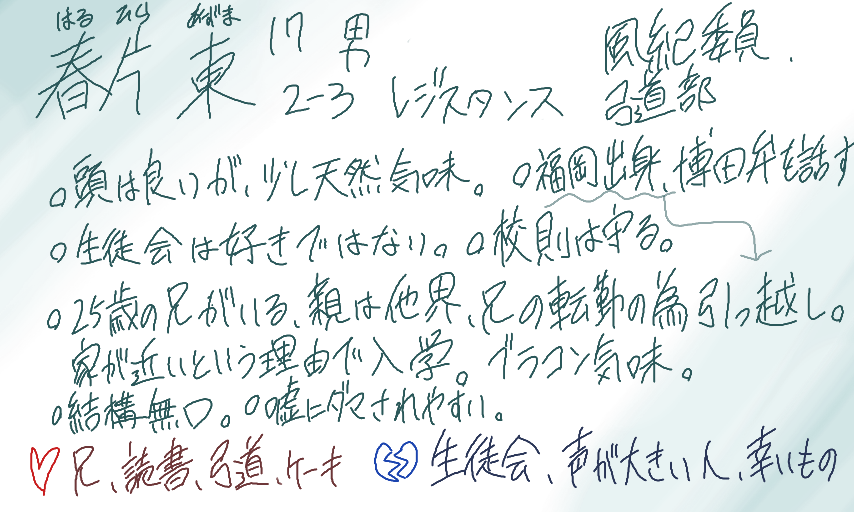 はる ひら あずま
春片 東 17 男 風紀委員.
2-3 レジスタンス 弓道部
○頭は良いが、少し天然気味。 ○福岡出身、博田弁を話す
○生徒会は好きではない。○校則は守る。
○25歳の兄がいる、親は他界、兄の転勤の為引っ越し。
家が近いという理由で入学。ブラコン気味。
○結構無口。○嘘にダマされやすい。
兄、読書、弓道、ケーキ 生徒会、声が大きい人、辛いもの